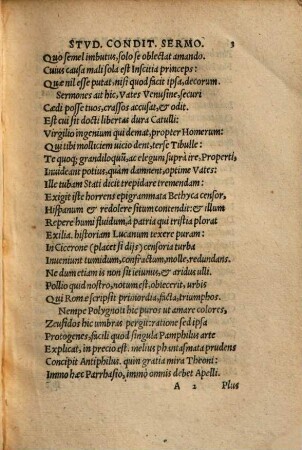 STVD. CONDIT. SERMO. 3
Quo semel imbutus, solo se oblectat amando.
Cuius causa mali sola est Inscitia princeps:
Quæ nil esse putat, nisi quod facit ipsa, decorum.
Sermones ait hic, Vates Venusine, securi
Cædi posse tuos, crassos accusat, & odit.
Est cui sit docti libertas dura Catulli:
Virgilio ingenium qui demat, propter Homerum:
Qui tibi molliciem uicio dent, terse Tibulle:
Te quoq; grandiloquũ, ac elegum suprà ire, Properti,
Inuideant potius, quàm damnent, optime Vates:
Ille tubam Stati dicit trepidare tremendam:
Exigit iste horrens epigrammata Bethyca censor,
Hispanum & redolere situm contendit: & illum
Repere humi fluidum, à patria qui tristia plorat
Exilia. historiam Lucanum texere puram:
In Cicerone (placet si dijs) censoria turba
Inueniunt tumidum, confractum, molle, redundans.
Ne dum etiam is non sit ieiunus, & aridus ulli.
Pollio quid nostro, notum est, obiecerit, urbis
Qui Romę scripsit primordia, facta, triumphos.
Nempe Polygnoti hic puros ut amare colores,
Zeusidos hic umbras pergit: ratione sed ipsa
Protogenes, facili quod singula Pamphilus arte
Explicat, in precio est. melius phantasmata prudens
Concipit Antiphilus. quin gratia mira Throni:
Immo hæc Parrhasio, immo omnis debet Apelli.
A 2 Plus